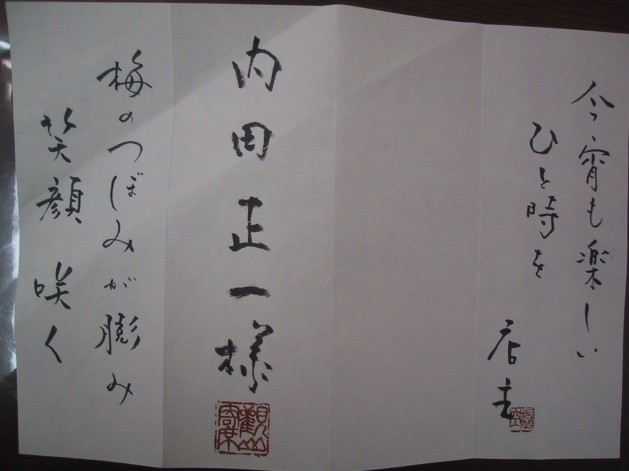 今宵も楽しい
ひと時を
店主
内田正一様
梅のつぼみが膨み
笑顔咲く